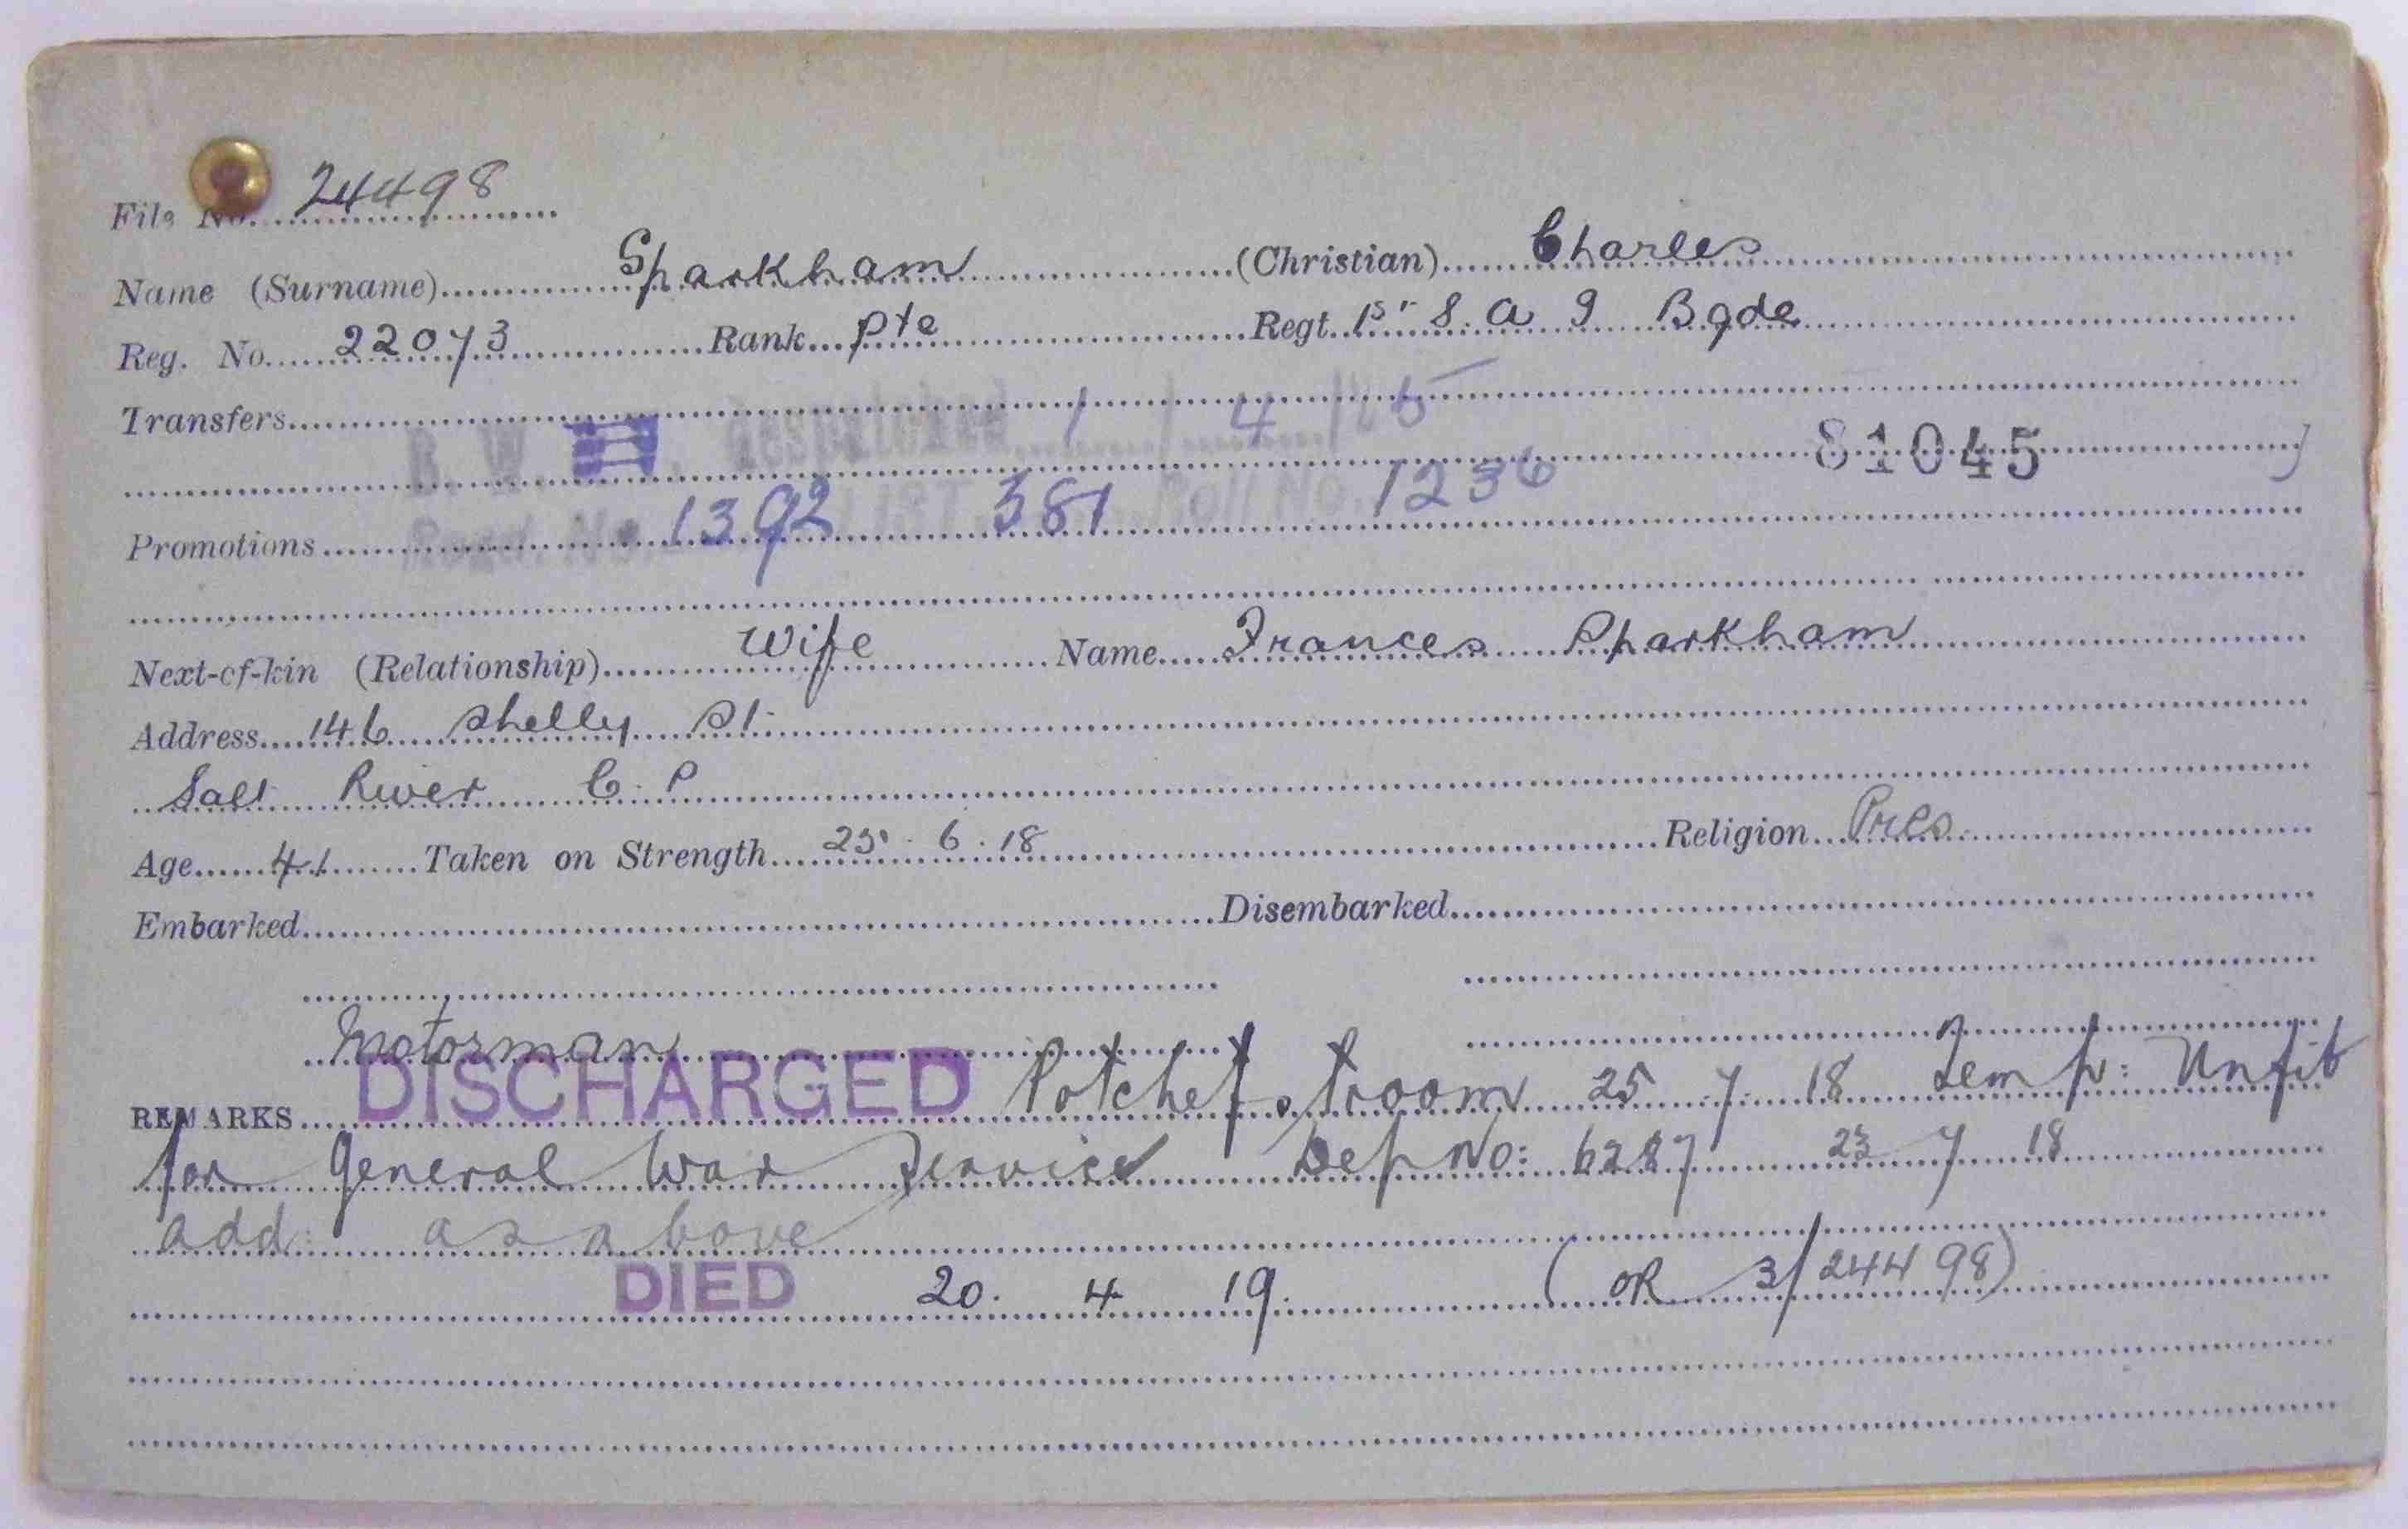 File No. 24498
Name (Surname) Sparkham (Christian) Charles
Reg. No. 22073 Rank Pte Regt. 1st S. A I Bgde
Transfers
B. W. Despatched 1 / 4 /
81045
Promotions Regd. No. 1392 LIST 381 Roll No. 1236
Next-of-kin (Relationship) Wife Name Frances Sparkham
Address 146 Shelly St.
Salt River C. P
Age 41 Taken on Strength 25. 6. 18 Religion Pres.
Embarked Disembarked
Motorman
REMARKS DISCHARGED Potchefstroom 25 7 18 Temp: Unfit
for General War Service Dep No: 6287 23 7 18
add: as above
DIED 20. 4 19. (OR 3/24498)